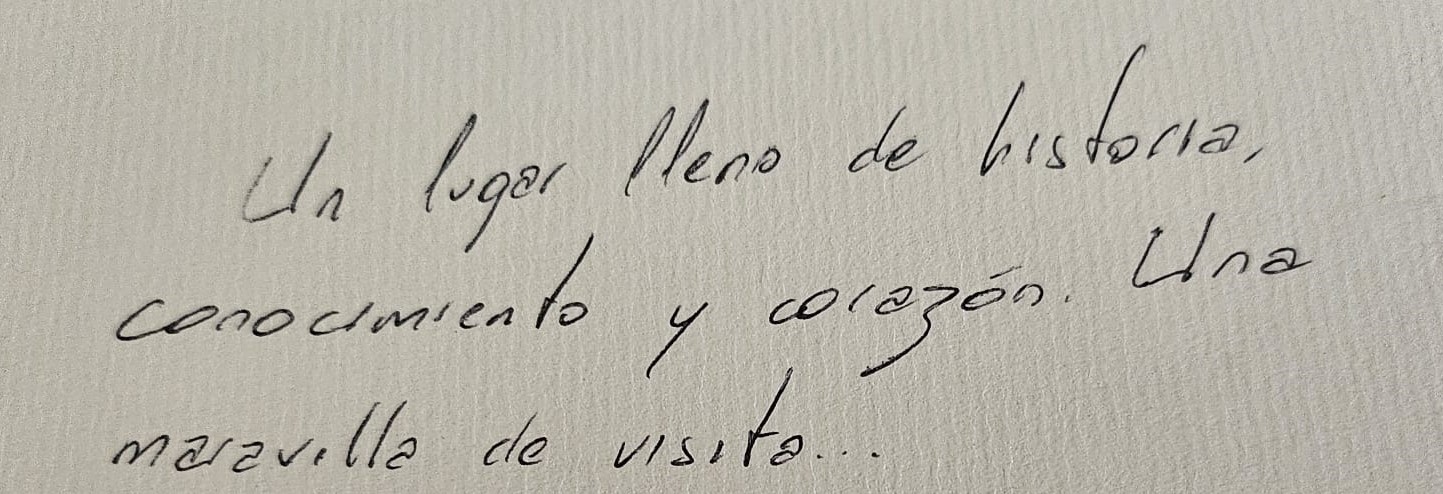 Un lugar lleno de historia,
conocimiento y corazón. Una
maravilla de visita...